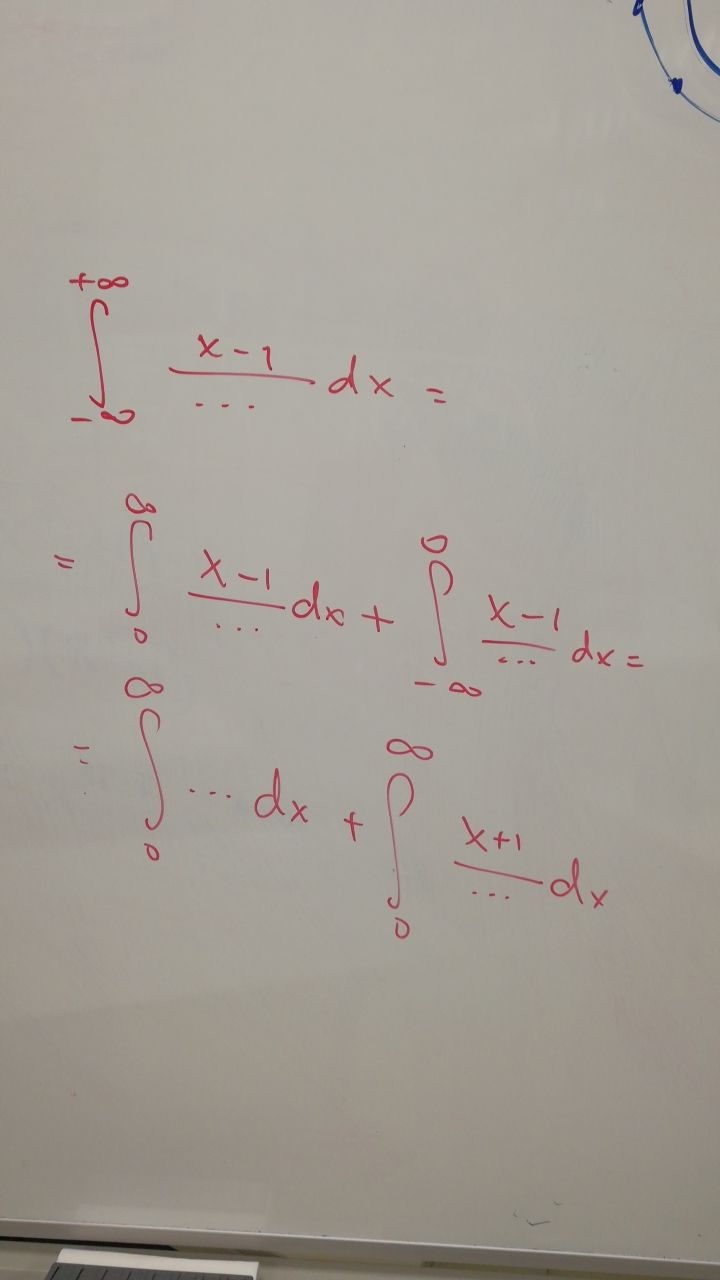 ∫_{-∞}^{+∞} (x-1)/(...) dx =
= ∫_0^∞ (x-1)/(...) dx + ∫_{-∞}^0 (x-1)/(...) dx =
= ∫_0^∞ ... dx + ∫_0^∞ (x+1)/(...) dx